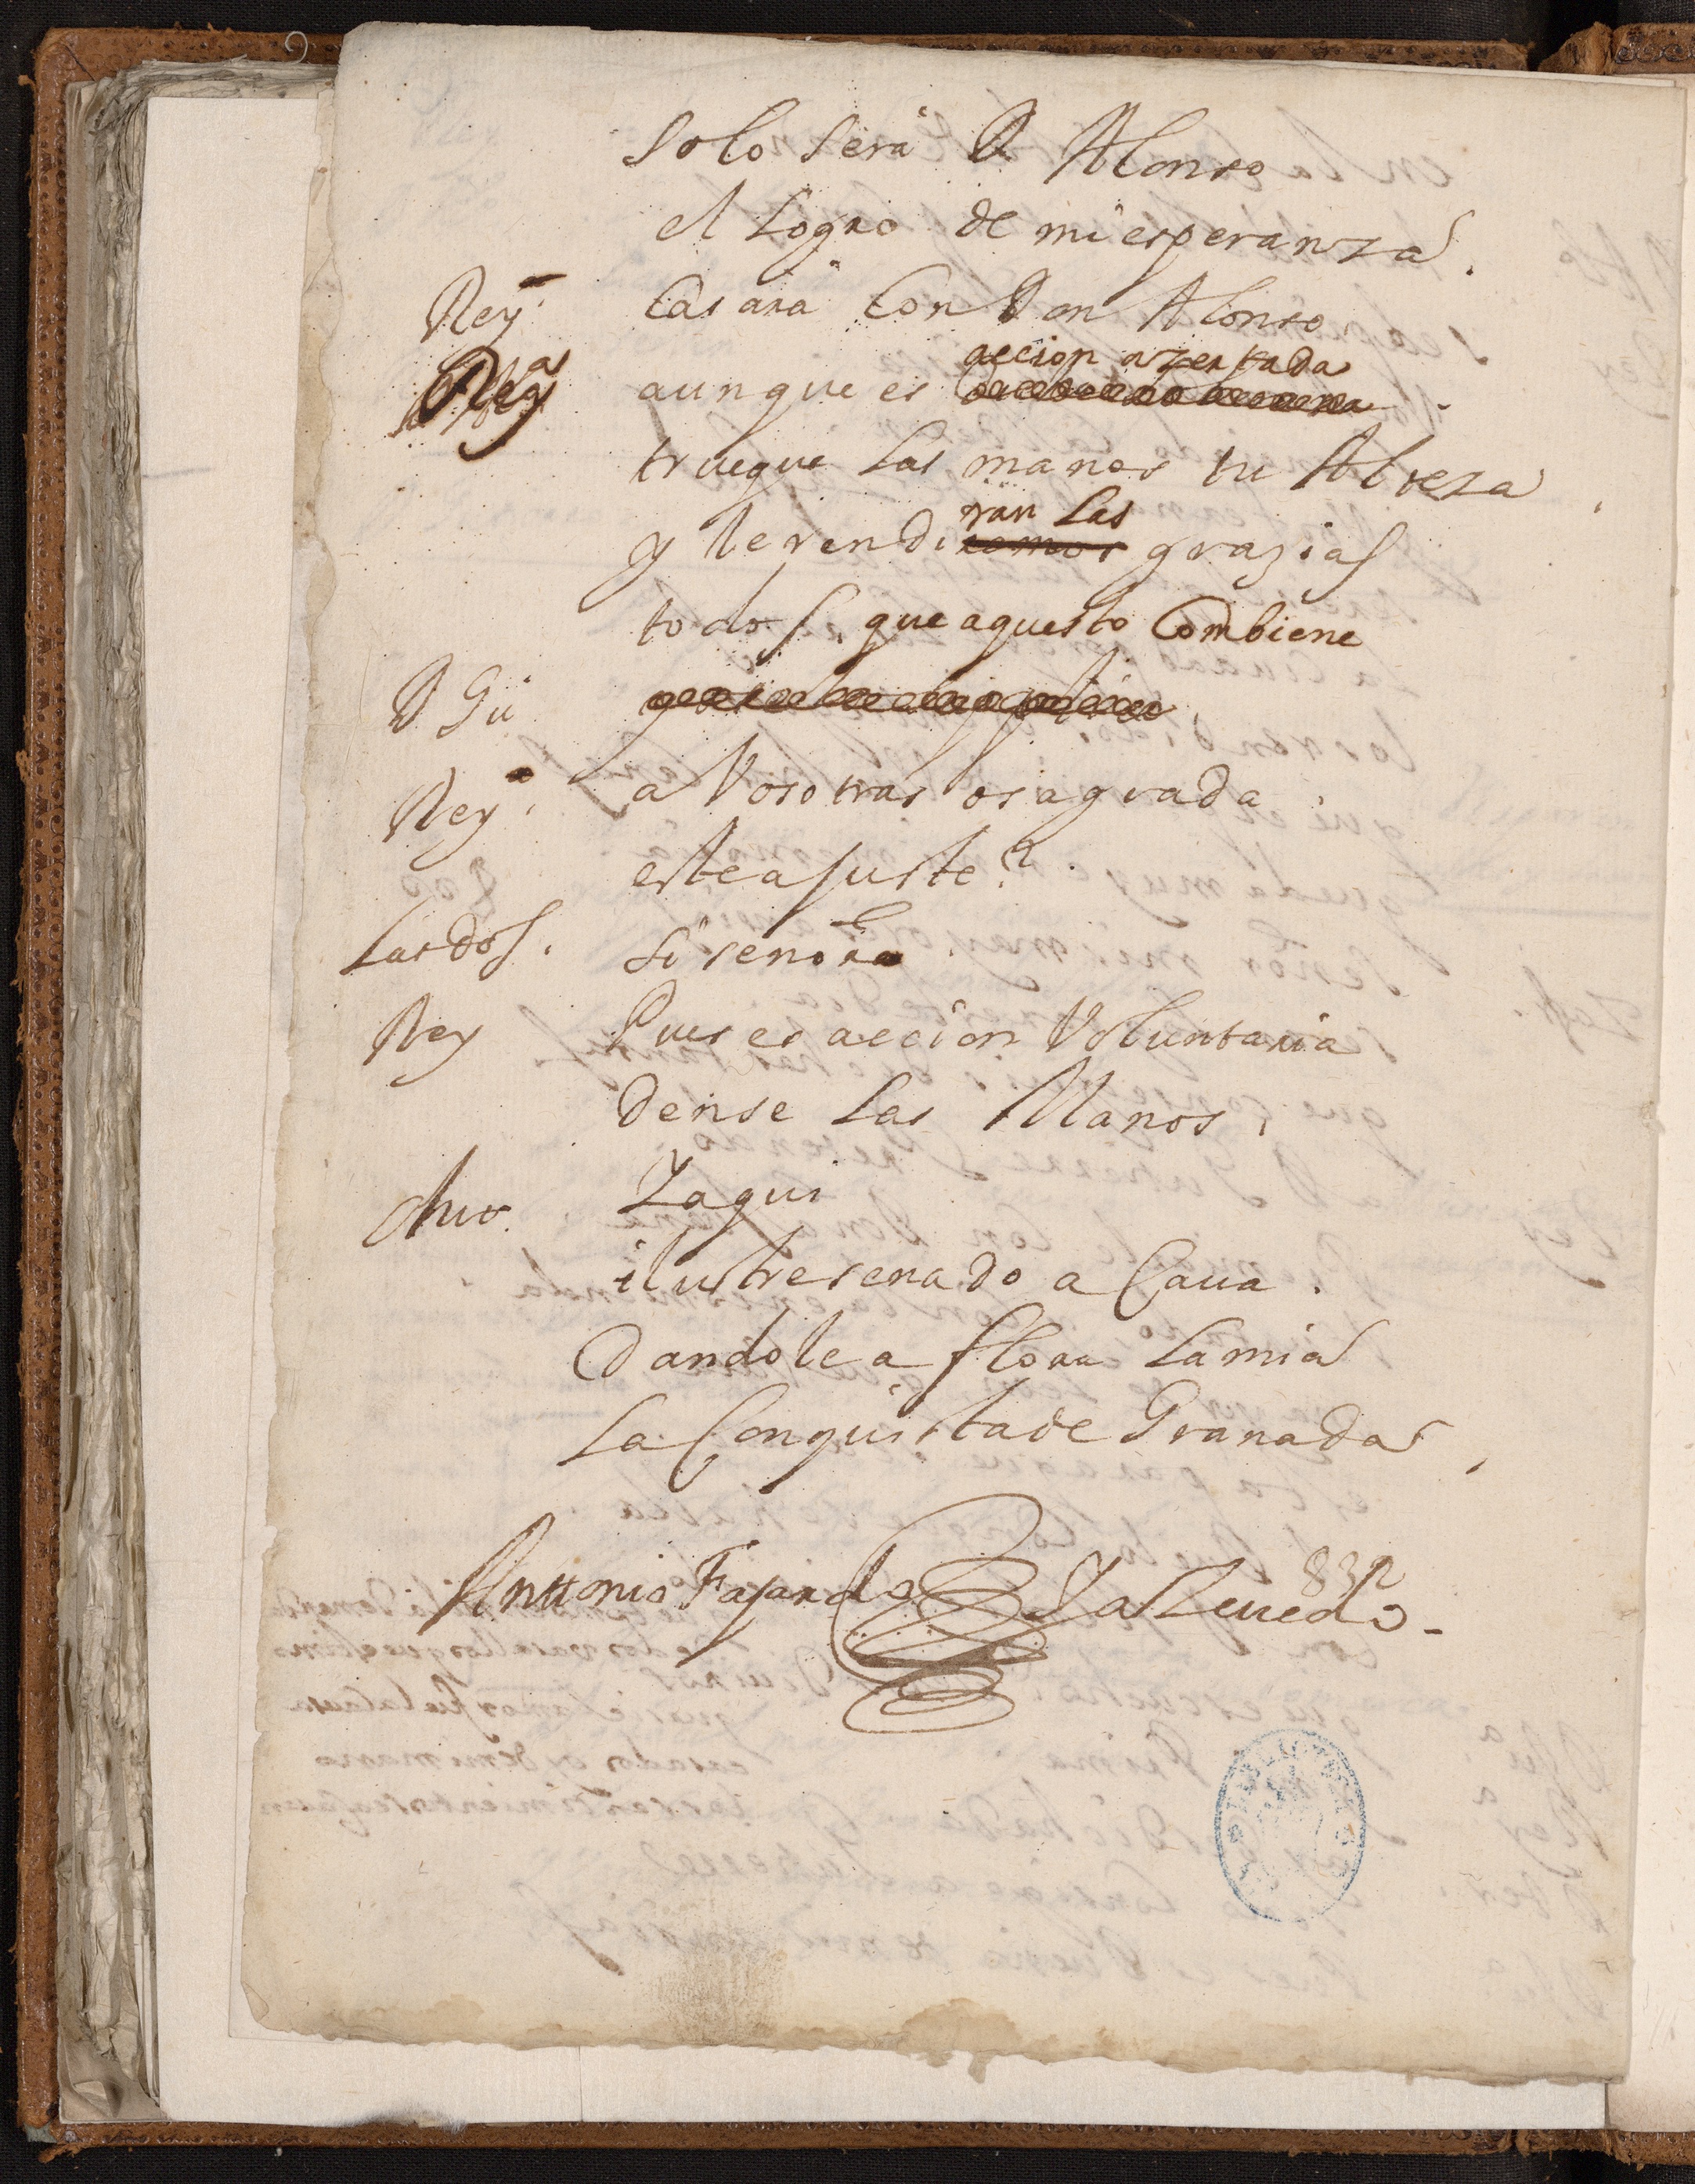 Solo Sera D Alonso
el Logro de mi esperanza.
Rey.ª Casara Con Don Alonso
Reyª aunque es accion azertada
trueque las manos tu Alteza
y le rendiran Las grazias
todos, que aquesto Combiene
D Gu
Rey.ª a Vosotras os agrada
este ajuste?
Las dos. Si senora
Rey Pues es accion Voluntaria
Dense las Manos.
chu. Yaqui
ilustre senado a Caua.
Dandole a flora la mia
La Conquista de Granada,
Anttonio Fajardo YaZeuedo